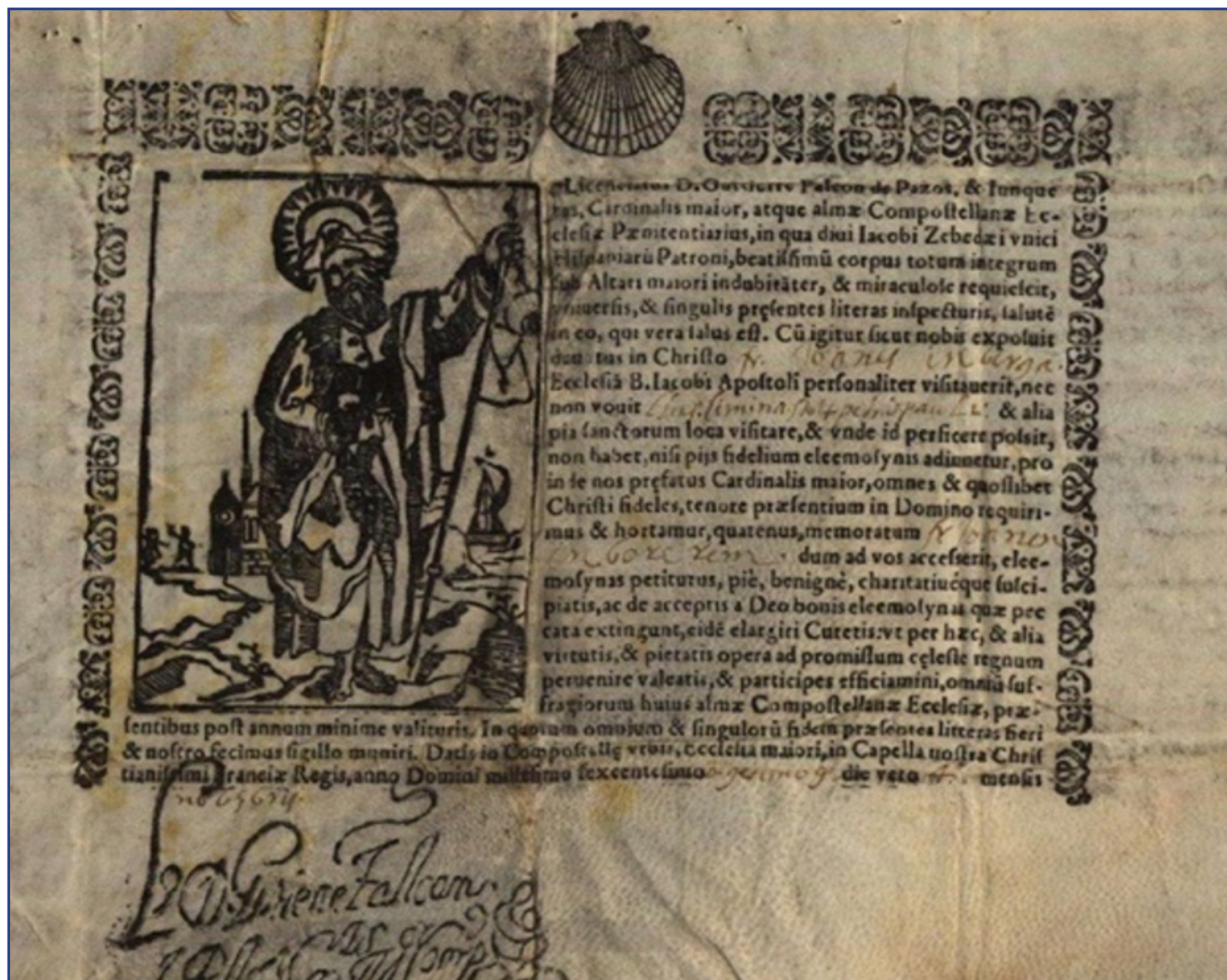 Licenciatus D. Gutterre Falcon de Pazos, & Iunque
ras, Cardinalis maior, atque almæ Compoſtellanæ Ec-
cleſiæ Pænitentiarius, in qua diui Iacobi Zebedæi vnici
Hiſpaniarū Patroni, beatiſſimū corpus totum integrum
ſub Altari maiori indubitāter, & miraculoſe requieſcit,
vniuerſis, & ſingulis pręſentes literas inſpecturis, ſalutē
in eo, qui vera ſalus eſt. Cū igitur ſicut nobis expoſuit
deuotus in Chriſto fr.
Eccleſiā B. Iacobi Apoſtoli perſonaliter viſitauerit, nec
non vouit & alia
pia ſanctorum loca viſitare, & vnde id perficere poſsit,
non habet, niſi pijs fidelium eleemoſynis adiuuetur, pro
in ſe nos pręfatus Cardinalis maior, omnes & quoſlibet
Chriſti fideles, tenore præſentium in Domino requiri-
mus & hortamur, quatenus, memoratum fr
dum ad vos acceſſerit, elee-
moſynas petiturus, piè, benignè, charitatiuéque ſuſci-
piatis, ac de acceptis a Deo bonis eleemoſynas quæ pec
cata extingunt, eidē elargiri Curetis: vt per hæc, & alia
virtutis, & pietatis opera ad promiſſum cęleſte regnum
peruenire valeatis, & participes efficiamini, omniū ſuf-
fragiorum huius almæ Compoſtellanæ Eccleſiæ, præ-
ſentibus poſt annum minime valituris. In quorum omnium & ſingulorū fidem præſentes litteras fieri
& noſtro fecimus ſigillo muniri. Datis in Compoſtellę vrbis, Eccleſia maiori, in Capella noſtra Chriſ
tianiſſimi Franciæ Regis, anno Domini milleſimo ſexcenteſimo die vero menſis